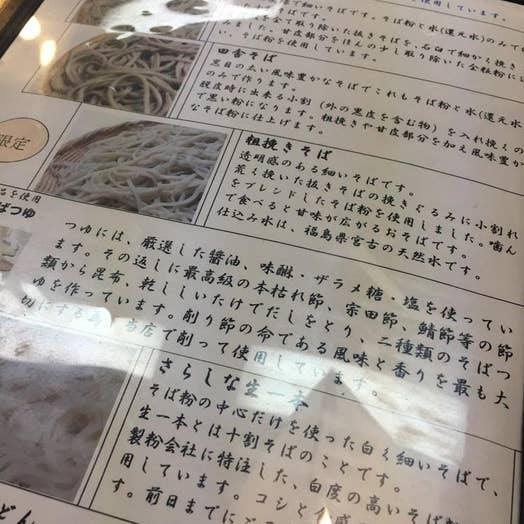 使用しています。
い細いそばです。そば粉と水(還元水)のみで
を全て取り除いた抜きそばを、石臼で細かく挽き
た。甘皮部分をほんの少し取り除いた全粒粉に
い、そば粉を使用しています。
田舎そば
黒目の太い風味豊かなそばでこれもそば粉と水(還元水
のみで作ります。
殻皮時に出来る小割(外の黒皮を含む物)を入れ挽くの
で黒い粉になります。粗挽きや甘皮部分を加え風味豊か
なそば粉に仕上げます。
限定
粗挽きそば
透明感のある細いそばです。
荒く挽いた抜きそばの挽きぐるみに小割れ
をブレンドしたそば粉を使用しました。噛ん
で食べると甘味が広がるおそばです。
仕込み水は、福島県宮古の天然水です。
品を使用
ばつゆ
つゆには、厳選した醤油、味醂・ザラメ糖・塩を使ってい
ます。その返しに最高級の本枯れ節、宗田節、鯖節等の節
類から昆布、乾ししいたけでだしをとり、二種類のそばつ
ゆを作っています。削り節の命である風味と香りを最も大
切にする為、当店で削って使用しています。
さらしな生一本
そば粉の中心だけを使った白く細いそばで、
生一本とは十割そばのことです。
製粉会社に特注した、白度の高いそば粉
用しています。コシと
す。前日までにご